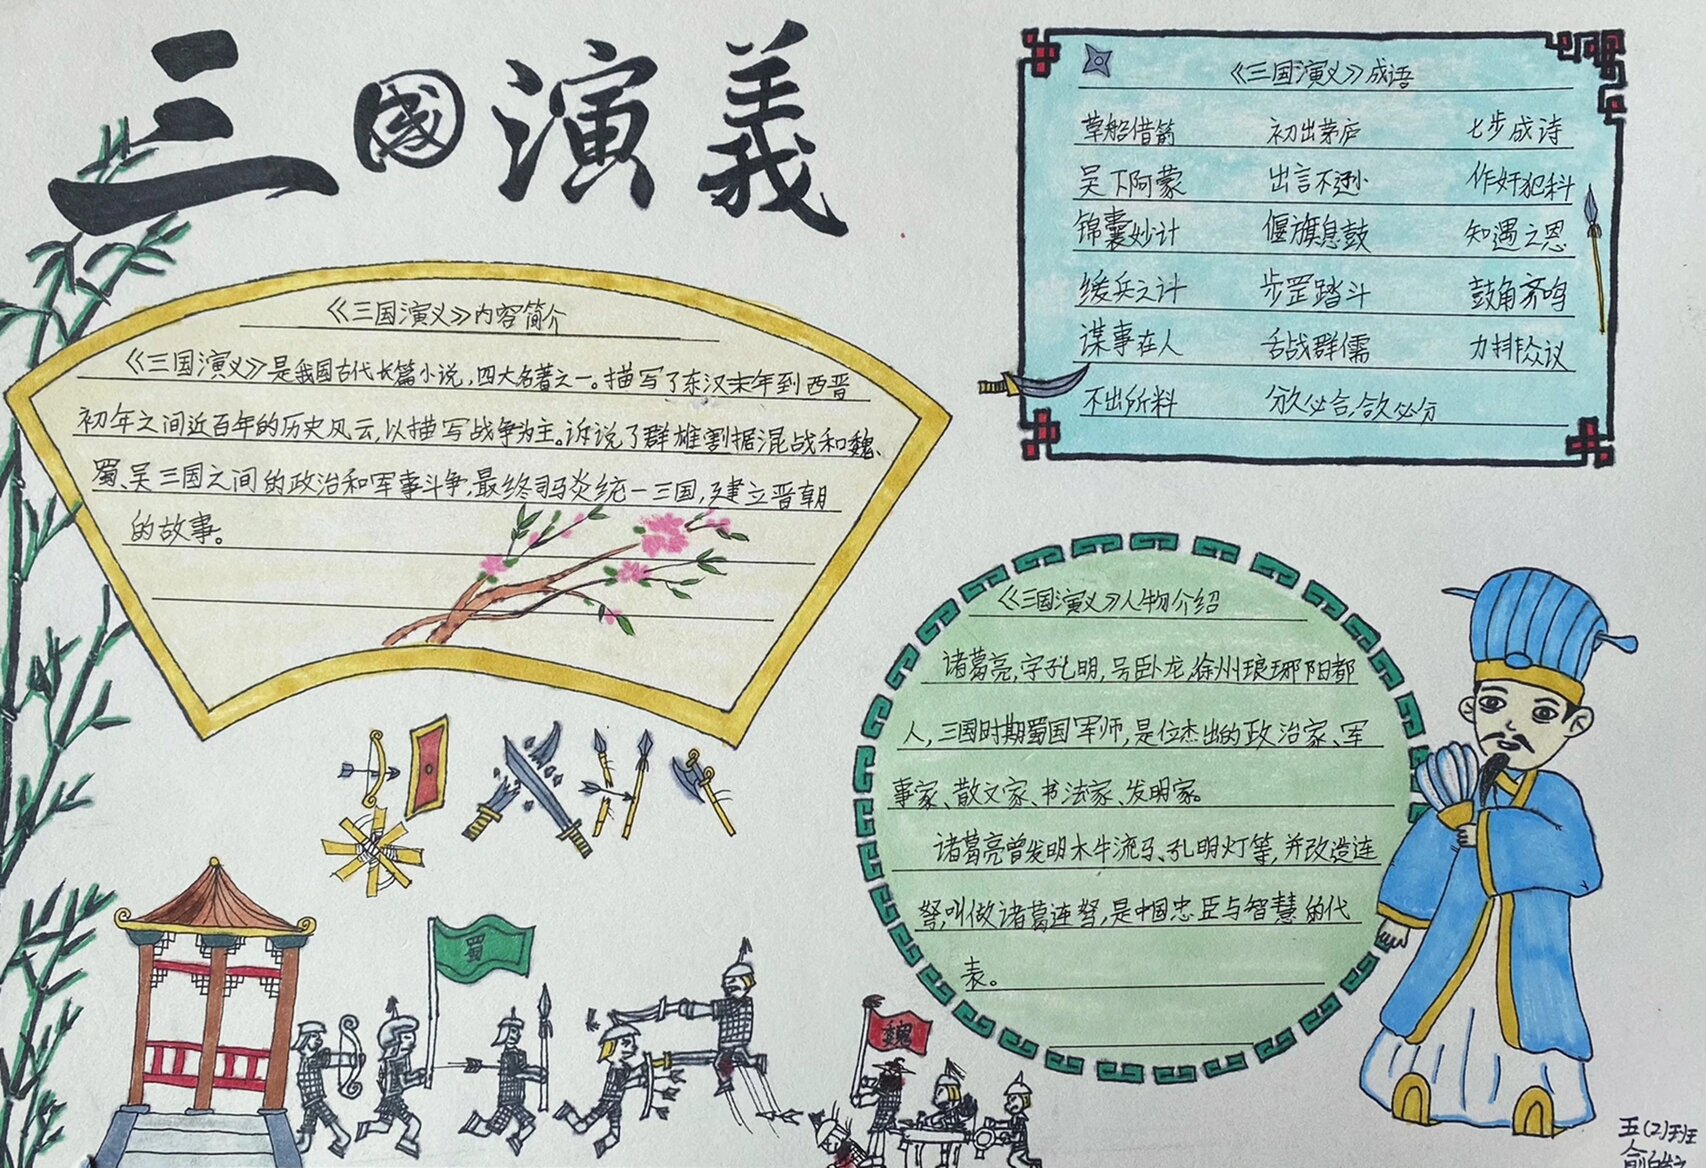 三國演義
《三国演义》内容简介
《三国演义》是我国古代长篇小说,四大名著之一。描写了东汉末年到西晋
初年之间近百年的历史风云,以描写战争为主。诉说了群雄割据混战和魏、
蜀、吴三国之间的政治和军事斗争,最终司马炎统一三国,建立晋朝
的故事。
《三国演义》成语
草船借箭 初出茅庐 七步成诗
吴下阿蒙 出言不逊 作奸犯科
锦囊妙计 偃旗息鼓 知遇之恩
缓兵之计 步罡踏斗 鼓角齐鸣
谋事在人 舌战群儒 力排众议
不出所料 分久必合,合久必分
《三国演义》人物介绍
诸葛亮,字孔明,号卧龙,徐州琅琊阳都
人,三国时期蜀国军师,是位杰出的政治家、军
事家、散文家、书法家、发明家。
诸葛亮曾发明木牛流马、孔明灯等,并改造连
弩,叫做诸葛连弩,是中国忠臣与智慧的代
表。
蜀
魏
五(2)班